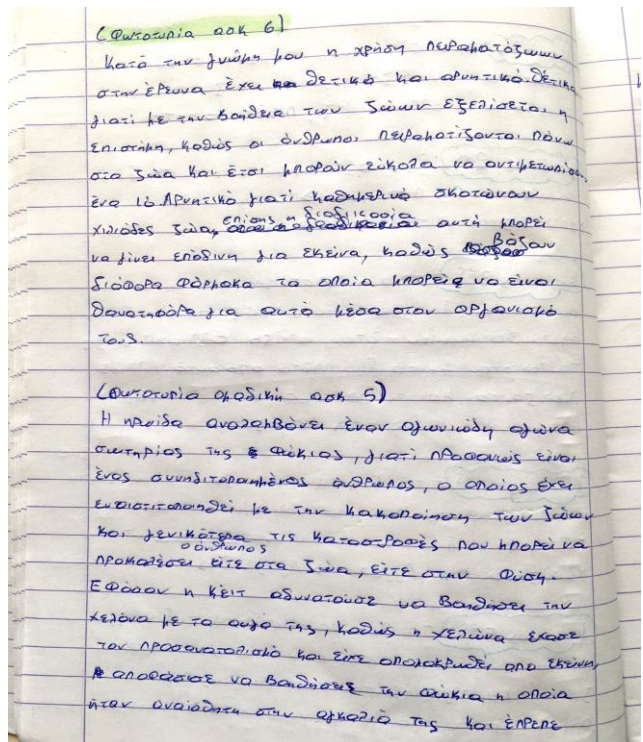 (Φωτοτυπία ασκ 6)
Κατά την γνώμη μου η χρήση πειραματόζωων
στην έρευνα έχει θετικά και αρνητικά. Θετικά
γιατί με την βοήθεια των ζώων εξελίσεται η
επιστήμη, καθώς οι άνθρωποι πειραματίζονται πάνω
στα ζώα και έτσι μπορούν εύκολα να αντιμετωπίσουν
ένα ιό. Αρνητικά γιατί καθημερινά σκοτώνουν
χιλιάδες ζώα, επίσης η διαδικασία αυτή μπορεί
να γίνει επώδυνη για εκείνα, καθώς βάζουν
διάφορα φάρμακα τα οποία μπορεί να είναι
θανατηφόρα για αυτά μέσα στον οργανισμό
τους.
(Φωτοτυπία ομαδική ασκ 5)
Η ηρωίδα αναλαμβάνει έναν αγωνιώδη αγώνα
σωτηρίας της φώκιας, γιατί προφανώς είναι
ένας συνηδιτοποιημένος άνθρωπος, ο οποίος έχει
ευαιστιτοποιηθεί με την κακοποίηση των ζώων
και γενικότερα τις καταστροφές που μπορεί να
προκαλέσει ο άνθρωπος είτε στα ζώα, είτε στην φύση.
Εφόσον η Κέιτ αδυνατούσε να βοηθήσει την
χελώνα με τα αυγά της, καθώς η χελώνα έχασε
τον προσανατολισμό και είχε απομακρυνθεί απο εκείνη,
αποφάσισε να βοηθήσει την φώκια η οποία
ήταν αναίσθητη στην αγκαλιά της και έπρεπε